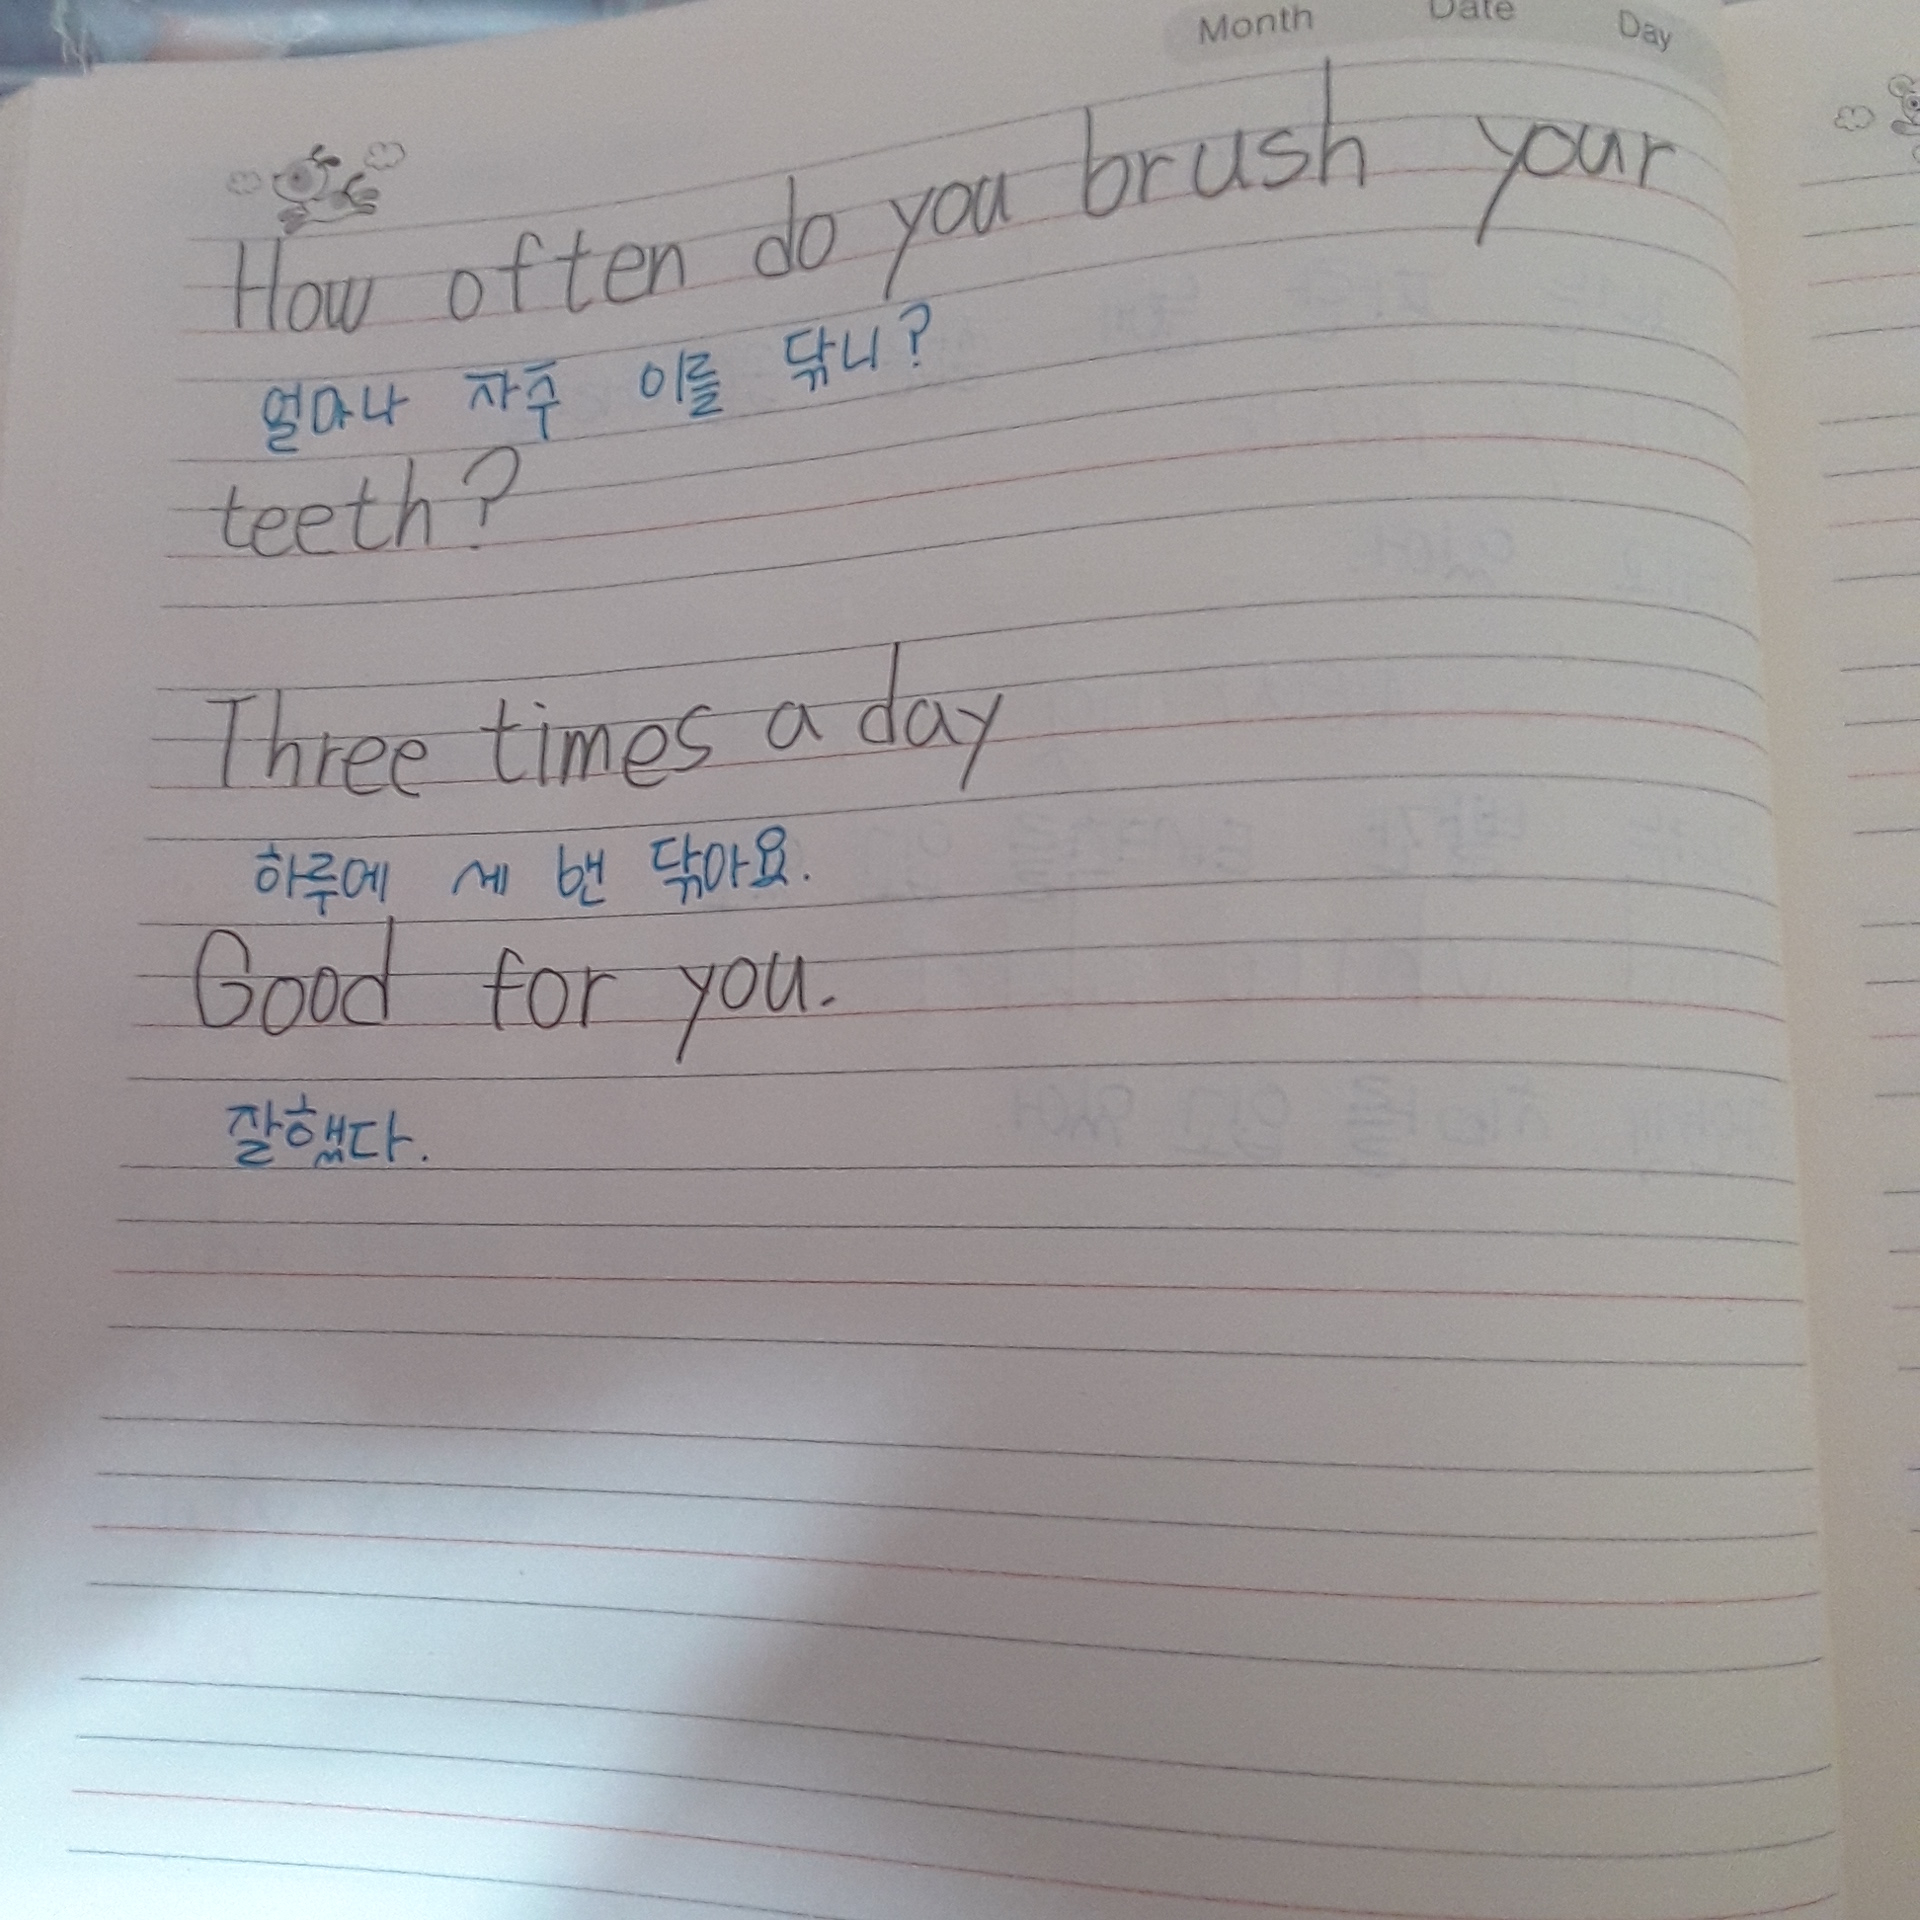 Month Date Day
How often do you brush your
얼마나 자주 이를 닦니?
teeth?
Three times a day
하루에 세 번 닦아요.
Good for you.
잘했다.